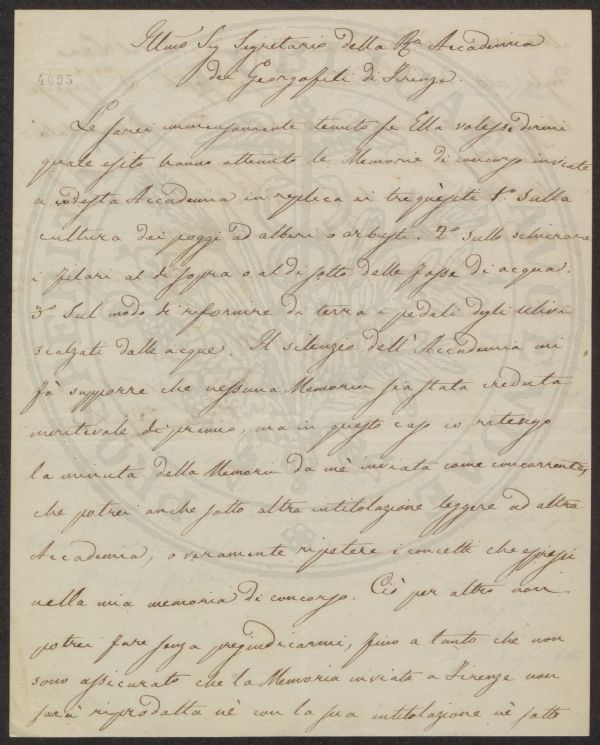 Illmo Sig Segretario della Ra Accademia
dei Georgofili di Firenze.
4095
Le sarei immensamente tenuto se Ella volesse dirmi
quale esito hanno ottenuto le Memorie di concorso inviate
a codesta Accademia in replica ai tre quesiti 1.o Sulla
cultura dei poggi ad alberi o arbusti. 2.o Sullo schierare
i filari al di sopra o al di sotto delle fosse di acqua.
3.o Sul modo di rifornire di terra i pedali degli Ulivi
scalzati dalle acque. Il silenzio dell'Accademia mi
fà supporre che nessuna Memoria sia stata creduta
meritevole di premio, ma in questo caso io ritengo
la minuta della Memoria da mè inviata come concorrente,
che potrei anche sotto altra intitolazione leggere ad altra
Accademia, o veramente ripetere i concetti che espressi
nella mia memoria di concorso. Ciò per altro non
potrei fare senza pregiudicarmi, fino a tanto che non
sono assicurato che la Memoria inviata a Firenze non
sarà riprodotta nè con la sua intitolazione nè sotto